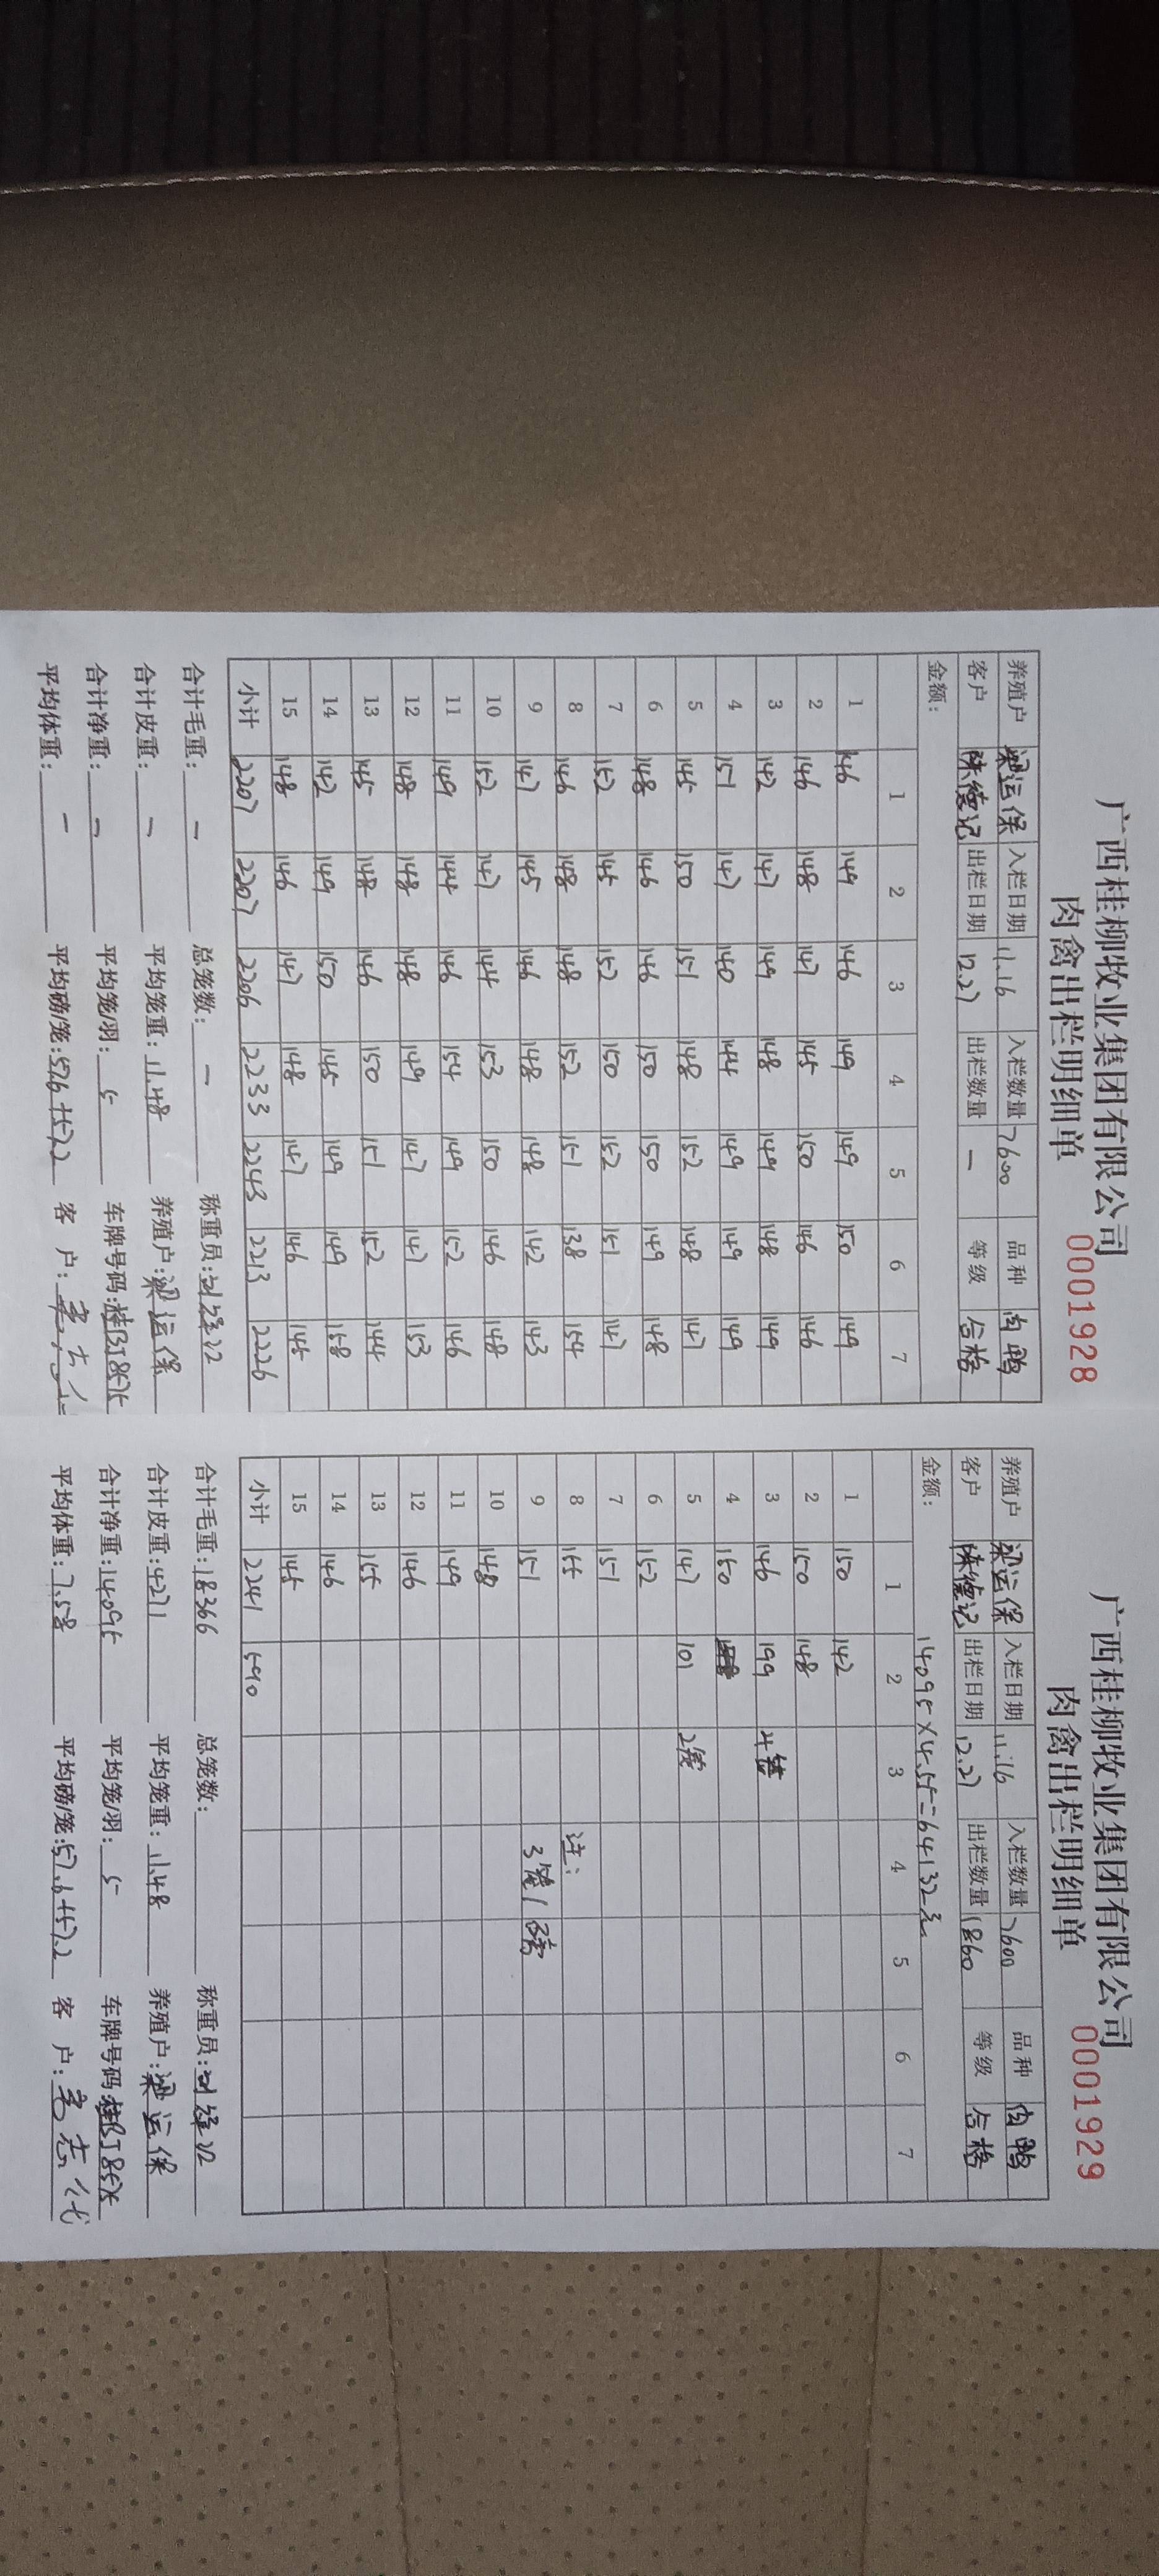 广西桂柳牧业集团有限公司
肉禽出栏明细单 0001928
养殖户 梁运保 入栏日期 11.16 入栏数量 7600 品种 肉鸭
客户 陈德记 出栏日期 12.27 出栏数量 — 等级 合格
金额：
1 2 3 4 5 6 7
1 146 149 146 149 149 150 149
2 146 148 147 145 150 146 146
3 142 147 149 148 149 148 149
4 151 147 140 144 149 149 149
5 145 150 151 148 152 148 147
6 148 146 146 150 150 149 148
7 152 145 152 150 152 151 147
8 146 148 148 152 151 138 154
9 147 145 146 148 148 142 143
10 152 147 144 153 150 146 148
11 149 144 146 154 149 152 146
12 148 148 148 149 147 147 153
13 145 148 146 150 151 152 144
14 142 149 150 145 149 149 158
15 148 146 147 148 147 146 145
小计 2207 2207 2206 2233 2243 2213 2226
合计毛重： — 总笼数： — 称重员：
合计皮重： — 平均笼重：11.48 养殖户：梁运保
合计净重： — 平均笼/羽：5 车牌号码：桂BJ8575
平均体重： — 平均磅/笼：57.6+57.2 客 户：
广西桂柳牧业集团有限公司
肉禽出栏明细单 0001929
养殖户 梁运保 入栏日期 11.16 入栏数量 7600 品种 肉鸭
客户 陈德记 出栏日期 12.27 出栏数量 1860 等级 合格
金额： 14095×4.55=64132元
1 2 3 4 5 6 7
1 150 142
2 150 148
3 146 199 4笼
4 150
5 147 101 2笼
6 152
7 151
8 155 注：
9 151 3笼1磅
10 148
11 149
12 146
13 155
14 146
15 145
小计 2241 590
合计毛重：18366 总笼数： 称重员：
合计皮重：4271 平均笼重：11.48 养殖户：梁运保
合计净重：14095 平均笼/羽：5 车牌号码：桂BJ8575
平均体重：7.58 平均磅/笼：57.6+57.2 客 户：